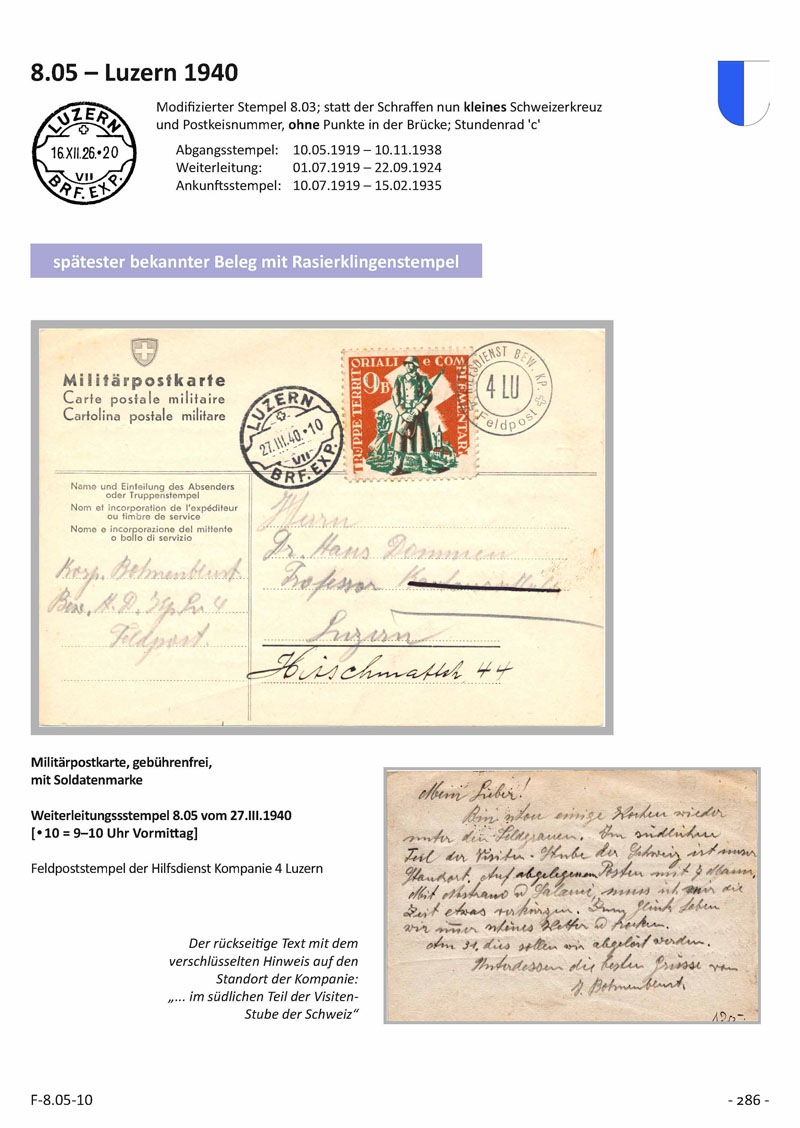 8.05 – Luzern 1940
Modifizierter Stempel 8.03; statt der Schraffen nun kleines Schweizerkreuz
und Postkeisnummer, ohne Punkte in der Brücke; Stundenrad 'c'
LUZERN
16.XII.26.•20
VII
BRF.EXP.
Abgangsstempel: 10.05.1919 – 10.11.1938
Weiterleitung: 01.07.1919 – 22.09.1924
Ankunftsstempel: 10.07.1919 – 15.02.1935
spätester bekannter Beleg mit Rasierklingenstempel
Militärpostkarte
Carte postale militaire
Cartolina postale militare
LUZERN
27.III.40.•10
VII
BRF.EXP.
TRUPPE TERRITORIALI e COMPLEMENTARI
9B
HILFSDIENST BEW. KP.
4 LU
Feldpost
Name und Einteilung des Absenders
oder Truppenstempel
Nom et incorporation de l'expéditeur
ou timbre de service
Nome e incorporazione del mittente
o bollo di servizio
Korp. Bohnenblust
Bew. H. D. Kp. Lu 4
Feldpost.
Herrn
Dr. Hans Dommen
Professor
Luzern
Hirschmattstr. 44
Militärpostkarte, gebührenfrei,
mit Soldatenmarke
Weiterleitungssstempel 8.05 vom 27.III.1940
[•10 = 9–10 Uhr Vormittag]
Feldpoststempel der Hilfsdienst Kompanie 4 Luzern
Der rückseitige Text mit dem
verschlüsselten Hinweis auf den
Standort der Kompanie:
„... im südlichen Teil der Visiten-
Stube der Schweiz“
Mein Lieber!
Bin schon einige Wochen wieder
unter den Feldgrauen. Im südlichen
Teil der Visiten-Stube der Schweiz ist unser
Standort. Auf abgelegenen Posten mit 7 Mann,
Mit Nostrano & Salami, muss ich mir die
Zeit etwas verkürzen. Zum Glück haben
wir immer schönes Wetter &
Am 31. dies sollen wir abgelöst werden.
Unterdessen die besten Grüsse von
J. Bohnenblust
F-8.05-10
- 286 -